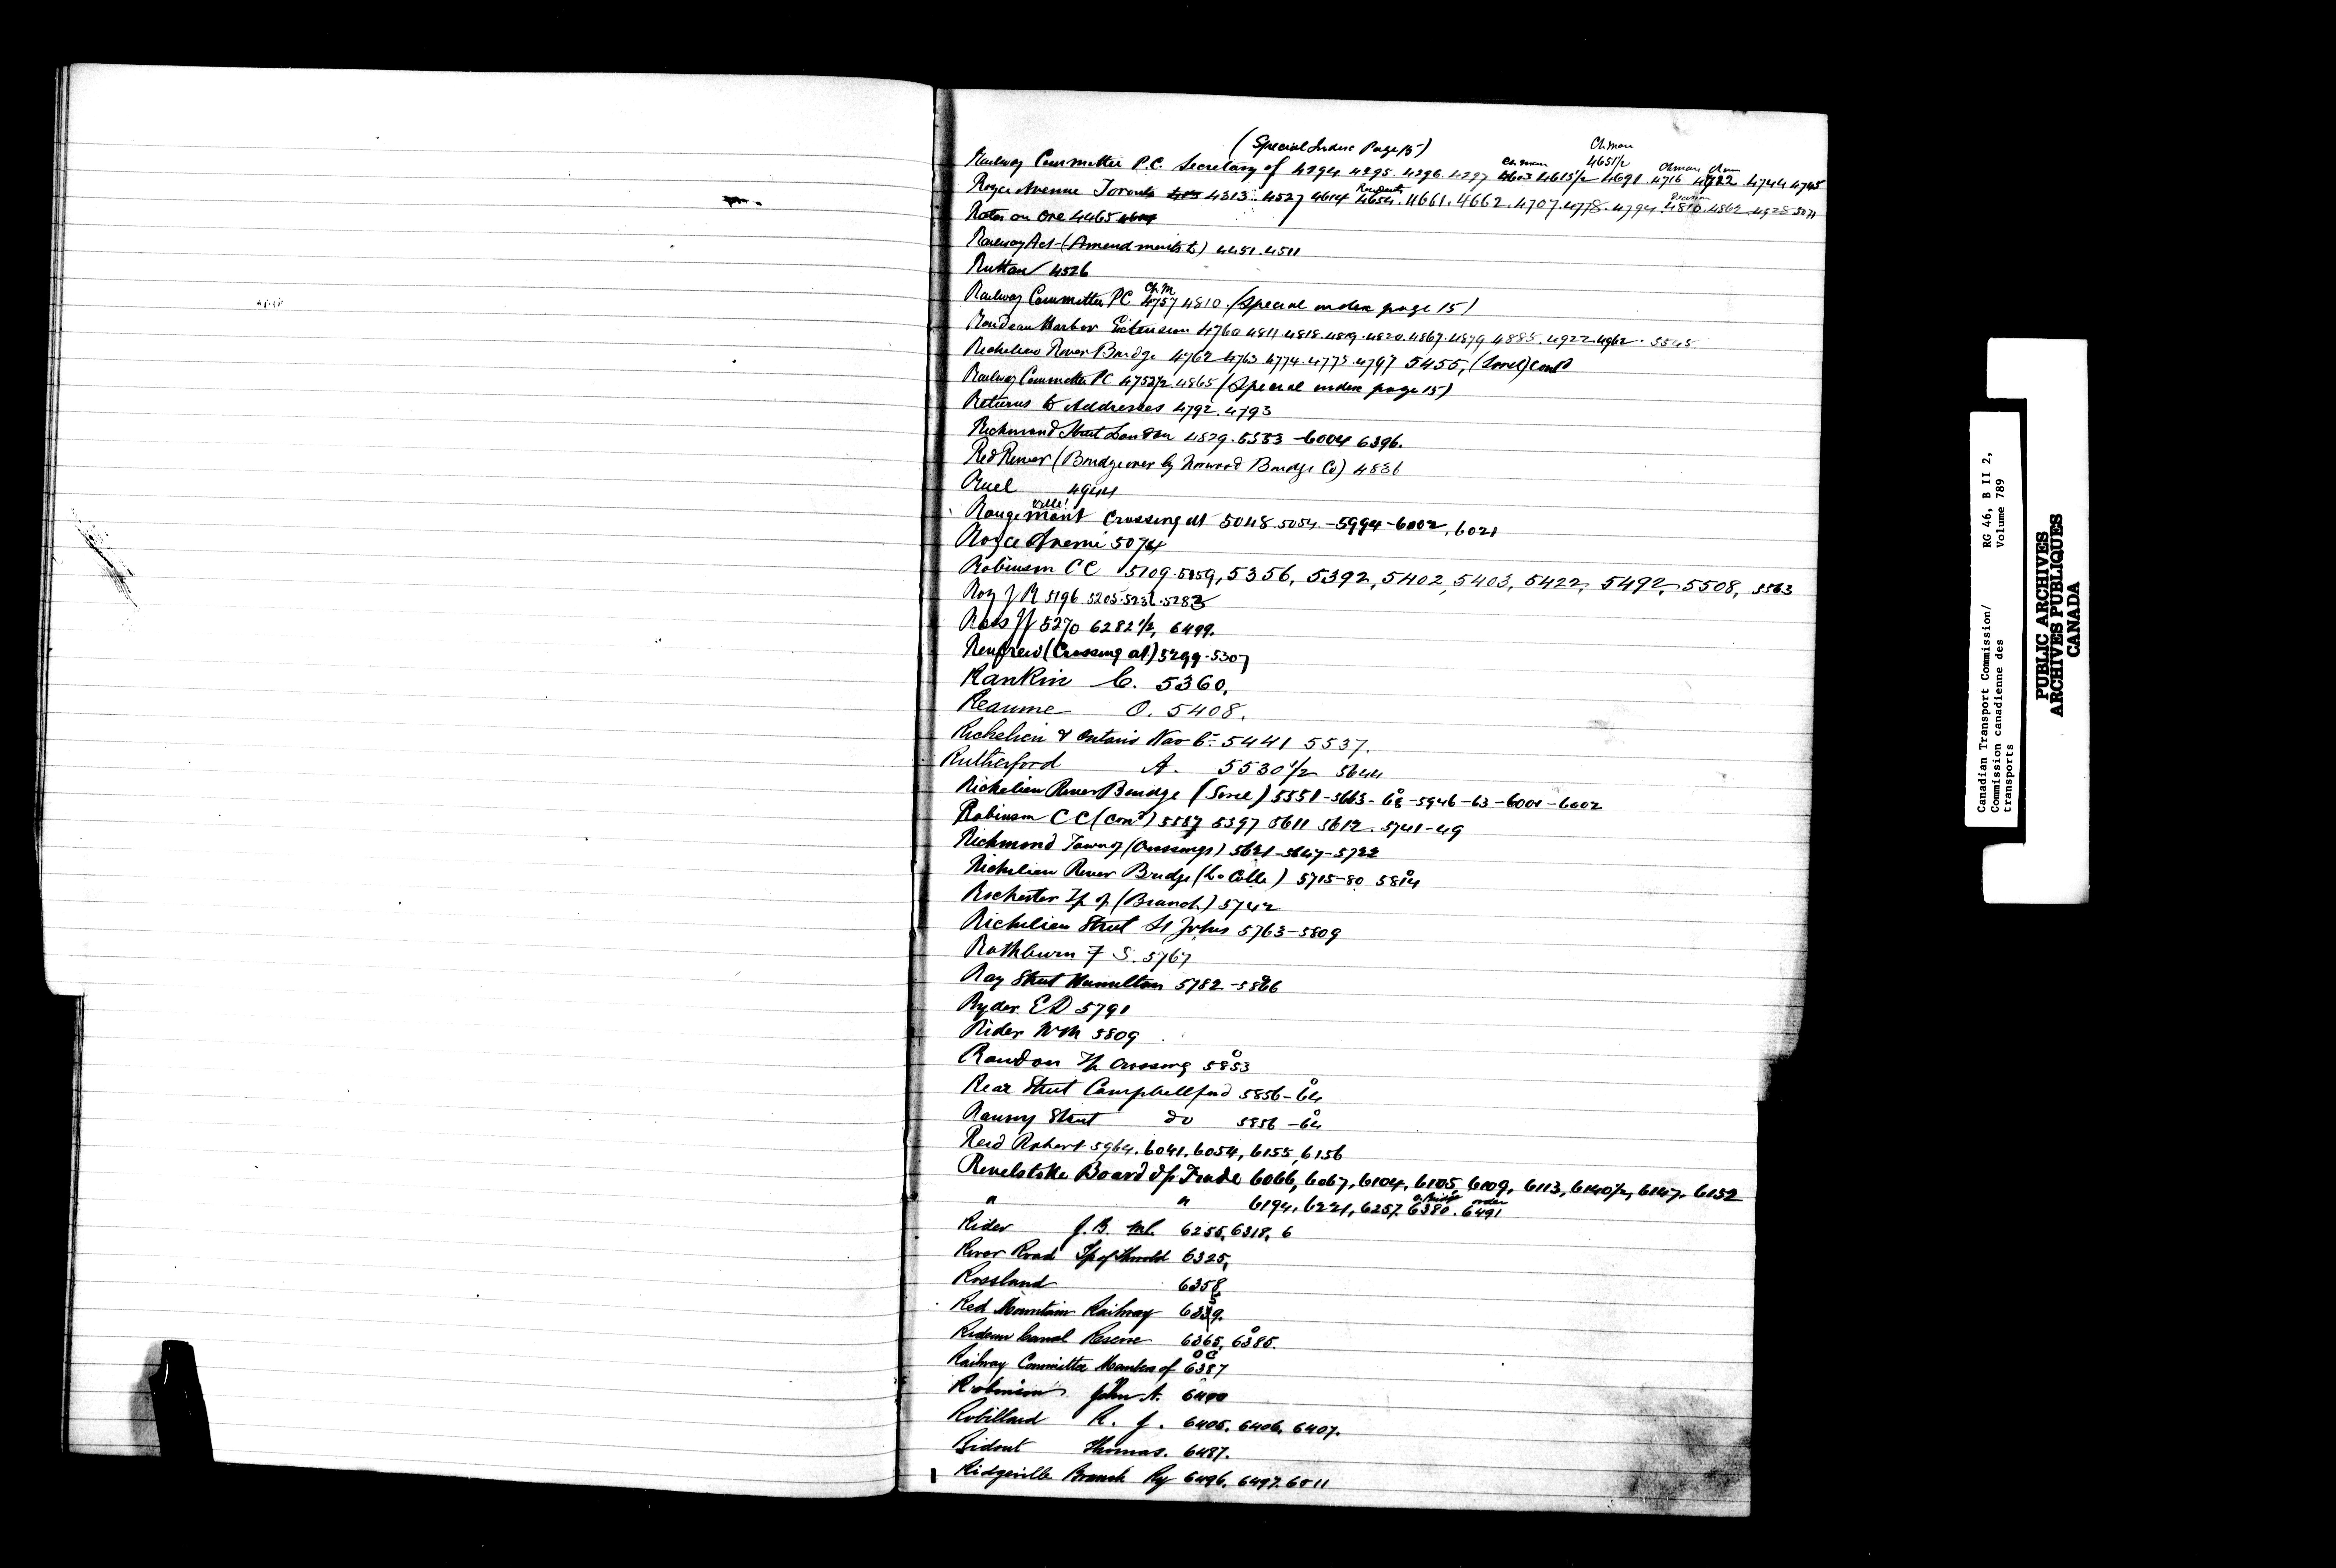 (Special Index Page 15)
Railway Committee P.C. Secretary of 4294 4295. 4296. 4297 4691 4716 4744 4745
Royce Avenue Toronto 4313. 4527 4614 4654. 4661. 4662. 4707. 4778. 4794. 4810. 4862
Rates on Ore 4465
Railway Act (Amendments to) 4451. 4511
Ruttan 4526
Railway Committee PC Ch.M 4757 4810. (Special index page 15)
Rondeau Harbor Extension 4760 4811. 4818. 4819. 4820. 4867. 4879 4885. 4922. 4962. 5545
Richelieu River Bridge 4762 4763 4774. 4775. 4797 5455, (Sorel) cont
Railway Committee PC 4752½ 4865 (Special index page 15)
Returns to Addresses 4792. 4793
Richmond Street London 4829. 5553 - 6004 6396.
Red River (Bridge over by Norwood Bridge Co) 4836
Ruel 4944
ville!
Rougemont Crossing at 5048. 5054. - 5994 - 6002, 6021
Royce Avenue 5074
Robinson CC 5109. 5359, 5356, 5392, 5402, 5403, 5422, 5492, 5508, 5563
Roy J R 5196 5205. 5236. 5283
Ross JJ 5270 6282½, 6499.
Renfrew (Crossing at) 5299. 5307
Rankin C. 5360.
Reaume O. 5408.
Richelieu & Ontario Nav Co. 5441 5537.
Rutherford A. 5530½ 5644
Richelieu River Bridge (Sorel) 5551 - 5663 - 68 - 5946 - 63 - 6001 - 6002
Robinson CC (con'd) 5587 5597 5611 5612. 5741-49
Richmond Town of (Crossings) 5621 - 5647 - 5722
Richelieu River Bridge (LaColle) 5715-80 5814
Rochester Tp of (Branch) 5742
Richelieu Street St Johns 5763-5809
Rathburn F S. 5767
Ray Street Hamilton 5782 - 5866
Ryder E D 5791
Rider Wm 5809
Rawdon Tp Crossing 5853
Rear Street Campbellford 5856-64
Ranny Street do 5856-64
Reid Robert 5964. 6041. 6054, 6155, 6156
Revelstoke Board of Trade 6066, 6067, 6104, 6105, 6109, 6113, 6140½, 6147. 6152
" " 6194, 6221, 6257. 6380. order 6491
Rider J. B. M.P. 6255, 6318, 6
River Road Tp of Thorold 6325,
Rossland 6358
Red Mountain Railway 6359.
Rideau Canal Reserve 6365, 6385.
Railway Committee Members of 6387
Robinson John A. 6400
Robillard R. J. 6405. 6406, 6407.
Ridout Thomas. 6487.
Ridgeville Branch Ry 6496. 6497. 6511
Canadian Transport Commission/ RG 46, B II 2,
Commission canadienne des Volume 789
transports
PUBLIC ARCHIVES
ARCHIVES PUBLIQUES
CANADA